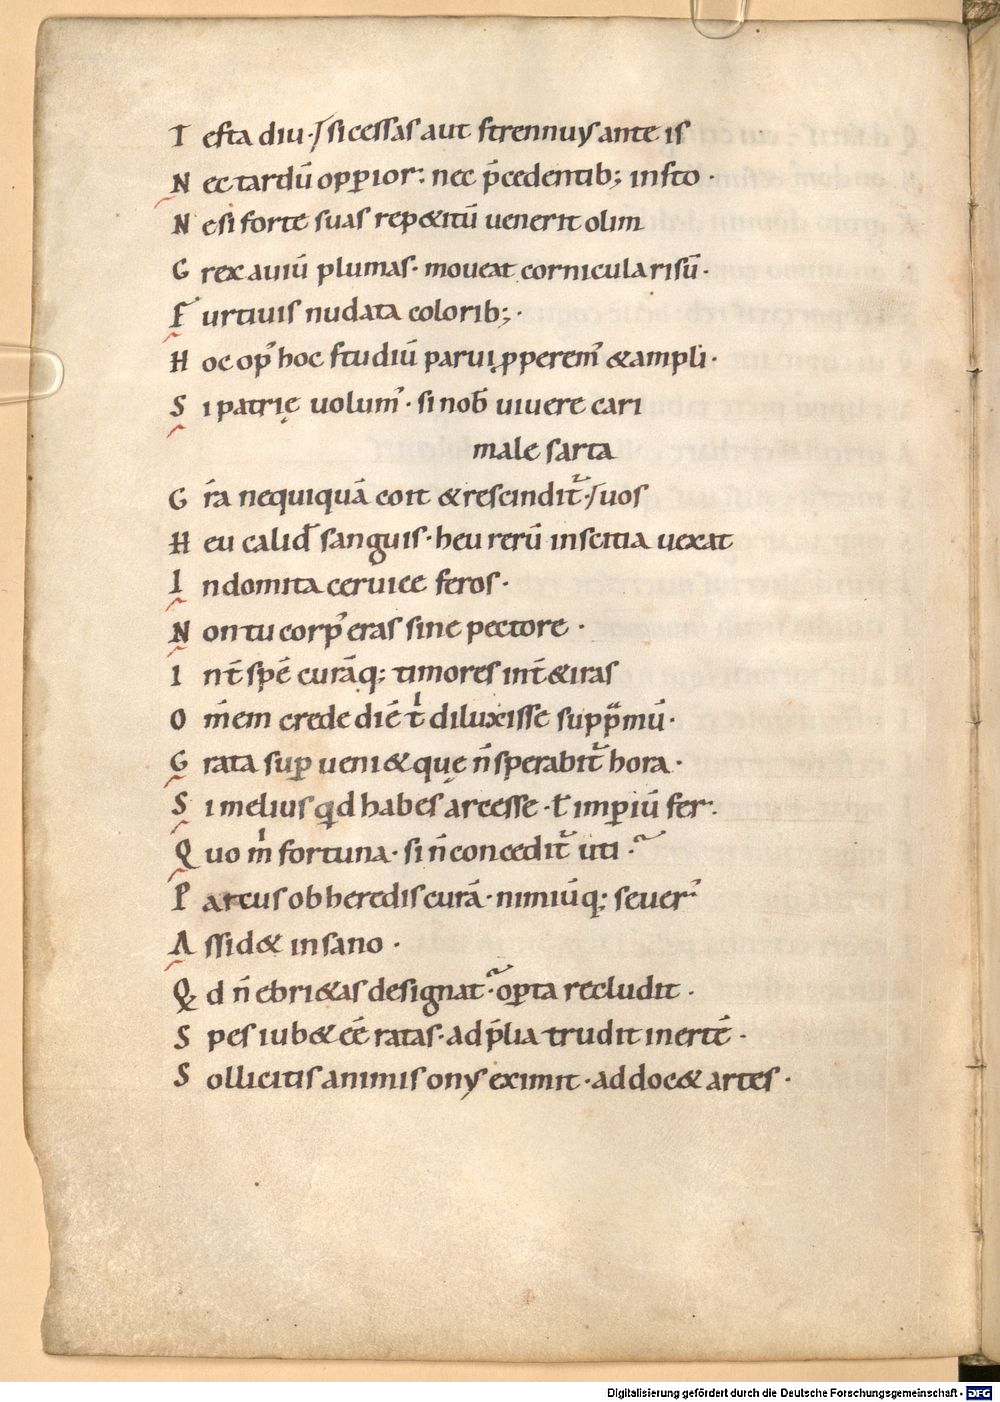 T esta diu·/ si cessas aut strennuus ante is
N ec tardū opp̱ior: nec p̄cedentib; insto·
N e si forte suas rep&itū uenerit olim
G rex auiū plumas· moueat cornicula risū·
F urtiuis nudata colorib;·
H oc op᾽ hoc studiū parui p̱perem᾽ & ampli·
S i patrię uolum᾽· si nob̄ uiuere cari
male sarta
G r̄a nequiquā coit & rescindit᷑·/ uos
H eu calid᾽ sanguis· heu rerū inscitia uexat
I ndomita ceruice feros·
N on tu corp᾽ eras sine pectore·
I nt̄ spē curāq; timores int̄ & iras
O m̄em crede diē tͥ diluxisse supp̄mū·
G rata sup̱ ueni& quę n̄ sperabit᷑ hora·
S i melius qd habes arcesse· t̄ imp̱iū fer᷑·
Q uo mͥ fortuna· si n̄ concedit᷑ uti·
P arcus ob heredis curā· nimiūq; seuer᾽
A ssid& insano·
Q d n̄ ebri&as designat᷑· op̱ta recludit·
S pes iub& eē ratas· ad p̄lia trudit inertē·
S ollicitis animis onus eximit· addoc& artes·
Digitalisierung gefördert durch die Deutsche Forschungsgemeinschaft - DFG